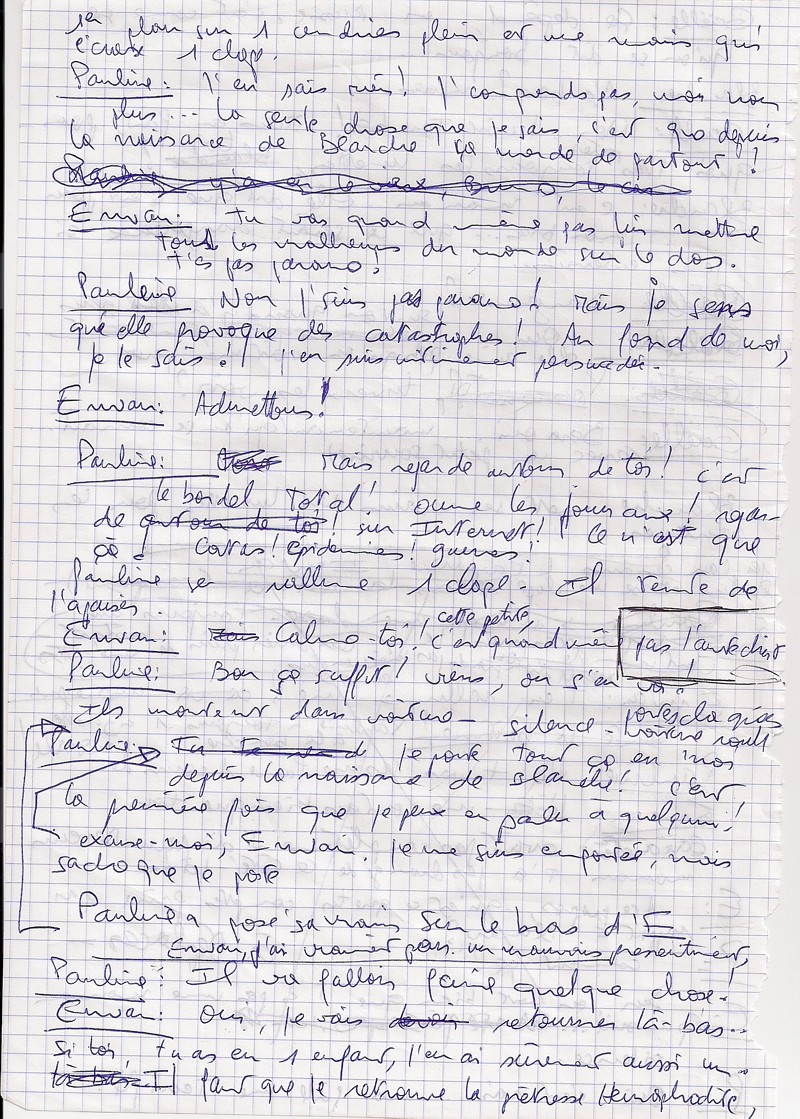 plan sur 1 cendrier plein et une main qui
écrase 1 clope.
Pauline: J'en sais rien! J'comprends pas, moi non
plus... La seule chose que je sais, c'est que depuis
la naissance de Blanche ça merde de partout!
Erwan: Tu vas quand même pas lui mettre
tous les malheurs du monde sur le dos.
T'es pas parano?
Pauline Non j'suis pas parano! Mais je sens
qu'elle provoque des catastrophes! Au fond de moi,
je le sais! J'en suis intimement persuadée.
Erwan: Admettons!
Pauline: Mais regarde autour de toi! C'est
le bordel total! Ouvre les journaux! regar-
de autour de toi! sur Internet! Ce n'est que
ça! Catas! épidémies! guerres!
Pauline rallume 1 clope. Il tente de
l'apaiser.
Erwan: Mais Calme-toi! cette petite, c'est quand même pas l'antéchrist!
Pauline: Bon ça suffit! viens, on s'en va.
Ils montent dans voiture - silence - portes claquées
voiture roule
Pauline: je porte tout ça en moi
depuis la naissance de Blanche! C'est
la première fois que je peux en parler à quelqu'un!
excuse-moi, Erwan, je me suis emportée, mais
sache que je porte
Pauline a posé sa main sur le bras d'E
Erwan, j'ai vraiment un mauvais pressentiment,
Pauline: Il va falloir faire quelque chose!
Erwan: Oui, je vais devoir retourner là-bas..
Si toi, tu as eu 1 enfant, j'en ai sûrement aussi un..
là-bas Il faut que je retrouve la prêtresse Hermaphrodite,